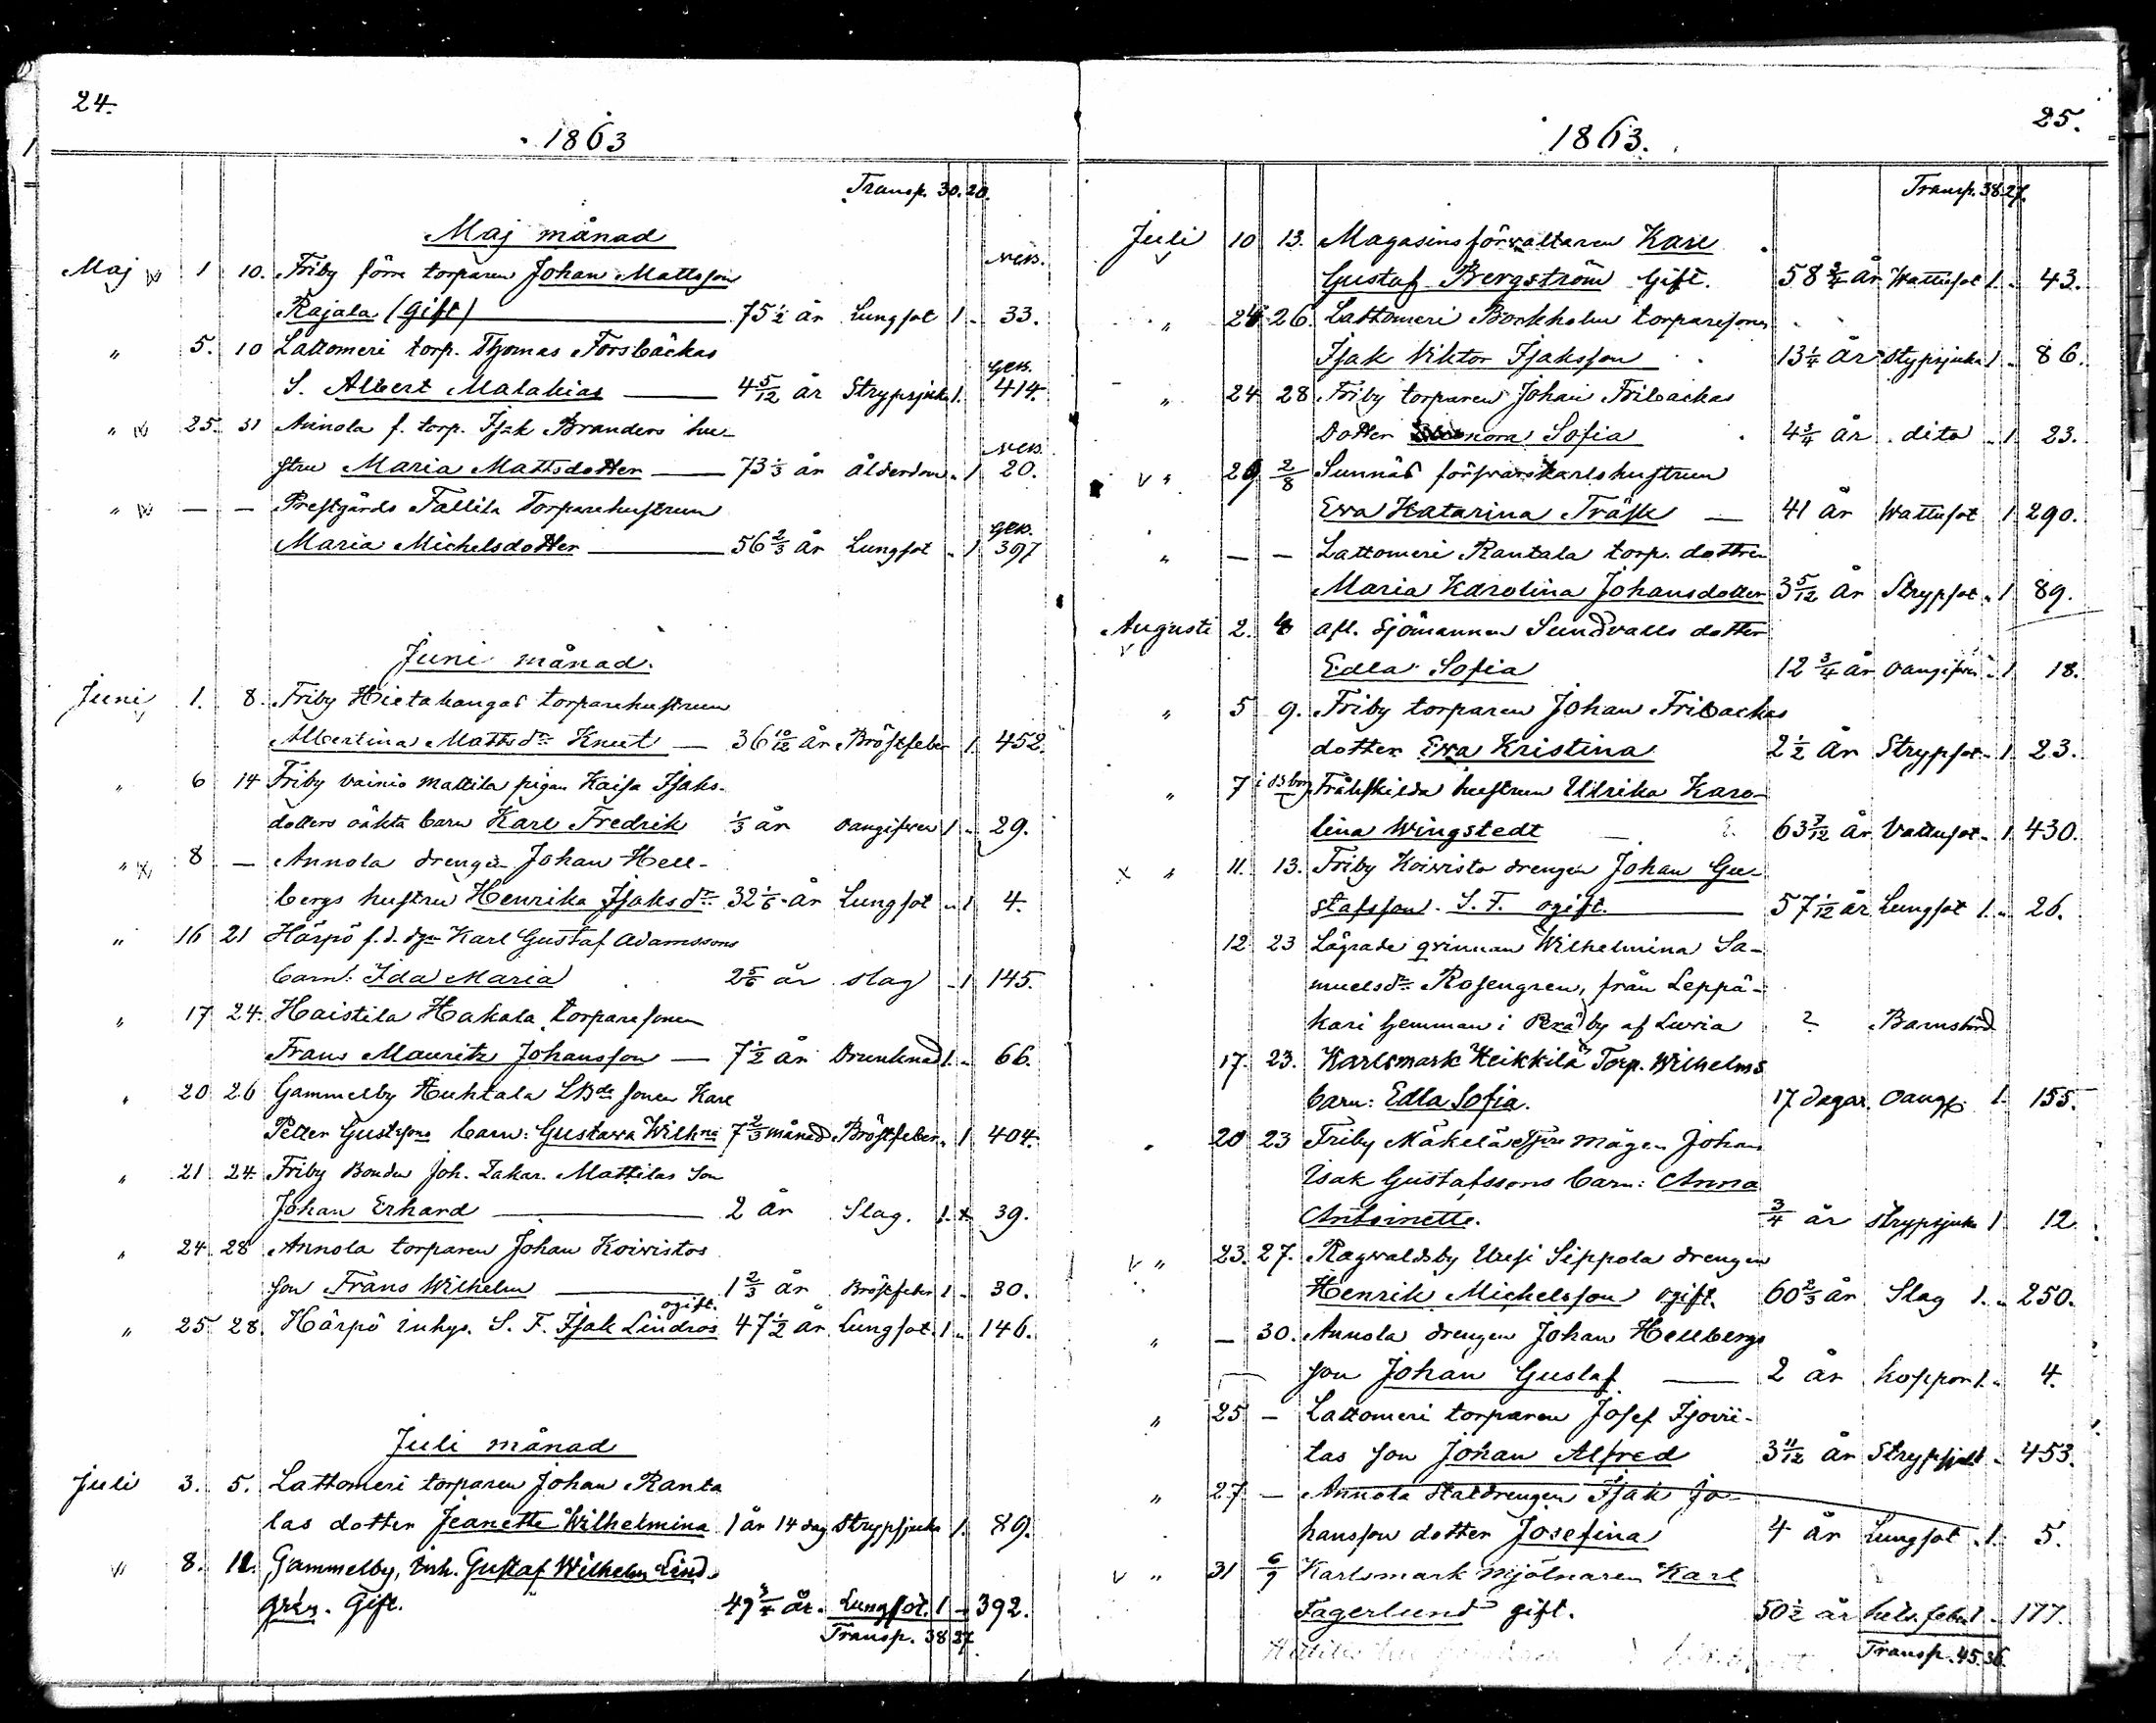 24.
1863
Transp. 30. 20.
Maj månad
Maj 1 10. Friby förra torparen Johan Mattsson
Rajala (Gift) — 75 1/2 år Lungsot 1 „ 33.
„ 5. 10 Lattomeri torp. Thomas Forsbäckas
S. Albert Malakias — 4 5/12 år Strypsjuka 1. 414.
„ 25. 31 Annola f. torp. Isak Branders hu-
stru Maria Mattsdotter — 73 1/3 år Ålderdom „ 1 20.
„ — — Prestgårds Tallila Torparehustrun
Maria Michelsdotter — 56 2/3 år Lungsot „ 1 397
Juni månad.
Juni 1. 8. Friby Hietakangas torparehustrun
Albertina Mattsdr Knut — 36 10/12 år Bröstfeber „ 1 452.
„ 6 14 Friby Vainio Mattila pigan Kaisa Isaks-
dotters oäkta barn Karl Fredrik 1/3 år oangifven 1 „ 29.
„ 8 — Annola drengen Johan Hell-
bergs hustru Henrika Isaksdr 32 1/6 år Lungsot „ 1 4.
„ 16 21 Härpö f.d. dgn Karl Gustaf Adamssons
barn: Ida Maria 2 5/6 år slag „ 1 145.
„ 17 24. Haistila Hakala torparesonen
Frans Mauritz Johansson — 7 1/2 år Drunknad 1. „ 66.
„ 20 26 Gammelby Huhtala LBde sonen Karl
Petter Gustfsons barn: Gustava Wilhna 7 2/3 månad Bröstfeber „ 1 404.
„ 21 24. Friby Bonden Joh. Zakar. Mattilas Son
Johan Erhard — 2 år Slag. 1. 39.
„ 24. 28 Annola torparen Johan Koivistos
son Frans Wilhelm — 1 2/3 år Bröstfeber 1 „ 30.
ogift.
„ 25 28. Härpö inhys. S. F. Isak Lindros 47 1/2 år Lungsot. 1 „ 146.
Juli månad
Juli 3. 5. Lattomeri torparen Johan Ranta
las dotter Jeanette Wilhelmina 1 år 14 dag Strypsjuka 1. 89.
8. 12. Gammelby, Inh. Gustaf Wilhelm Lind-
grén. Gift. 49 3/4 år. Lungsot. 1 — 392.
Transp. 38 27
25.
1863.
Transp. 38 27.
Juli 10 13. Magasinsförvaltaren Karl
Gustaf Bergström Gift. 58 3/4 år Wattusot 1. „ 43.
„ 24 26. Lattomeri Borkholm torparesonen
Isak Viktor Isaksson 13 1/4 år Strypsjuka 1 „ 86.
„ 24 28 Friby torparen Johan Fribackas
dotter Sofia 4 3/4 år dito „ 1 23.
„ 29 2/8 Sunnäs försvarskarlshustrun
Eva Katarina Träsk — 41 år Wattusot 1 290.
„ — — Lattomeri Rantala torp. dottren
Maria Karolina Johansdotter 3 5/12 år Strypsot „ 1 89.
Augusti 2. afl. Sjömannen Sundvalls dotter
Edla Sofia 12 3/4 år oangifven „ 1 18.
„ 5 9. Friby torparen Johan Fribackas
dotter Eva Kristina 2 1/2 år Strypsot „ 1 23.
„ 7 i Bborg Frånskilda hustrun Ulrika Karo-
lina Wingstedt 63 7/12 år Vattusot „ 1. 430.
„ 11. 13. Friby Koivisto drengen Johan Gu-
stafsson. S. F. ogift. — 57 1/12 år Lungsot 1. „ 26.
12 23 Lägrade qvinnan Wilhelmina Sa-
muelsdr Rosengren, från Leppä-
kari hemman i Perä by af Luvia ? Barnsbörd
17. 23. Karlsmark Heikkilä Torp. Wilhelms
barn: Edla Sofia. 17 dagar. Oangf. 1. 155.
„ 20 23 Friby Mäkelä mågen Johan
Isak Gustafssons barn: Anna
Antoinette. 3/4 år strypsjuka 1 12.
„ 23. 27. Ragvaldsby Uusi Sippola drengen
Henrik Michelsson ogift. 60 2/3 år Slag 1. „ 250.
„ — 30. Annola drengen Johan Hellbergs
son Johan Gustaf — 2 år koppor 1. „ 4.
„ 25 — Lattomeri torparen Josef Isovii-
tas son Johan Alfred 3 11/12 år Strypsjuk 1 „ 453.
„ 27 — Annola Staldrengen Isak Jo-
hansson dotter Josefina 4 år Lungsot „ 1. 5.
„ 31 6/9 Karlsmark mjölnaren Karl
Fagerlund gift. 50 1/2 år feber 1 „ 177.
Transp. 45. 36.